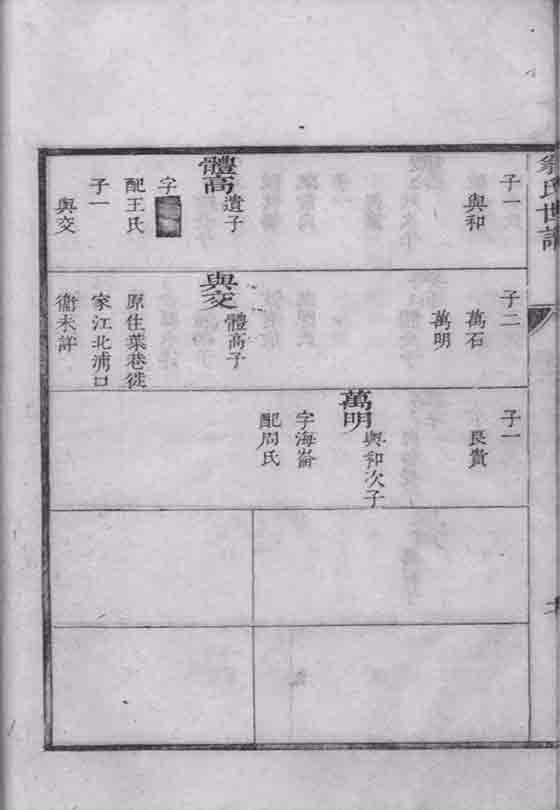 氏世譜
子一
與和
體高
遺子
字
配王氏
子一
與交
子二
萬石
萬明
與交
體高子
原住葉巷徙
家江北浦口
衞未詳
子一
良貴
萬明
與和次子
字海崙
配周氏